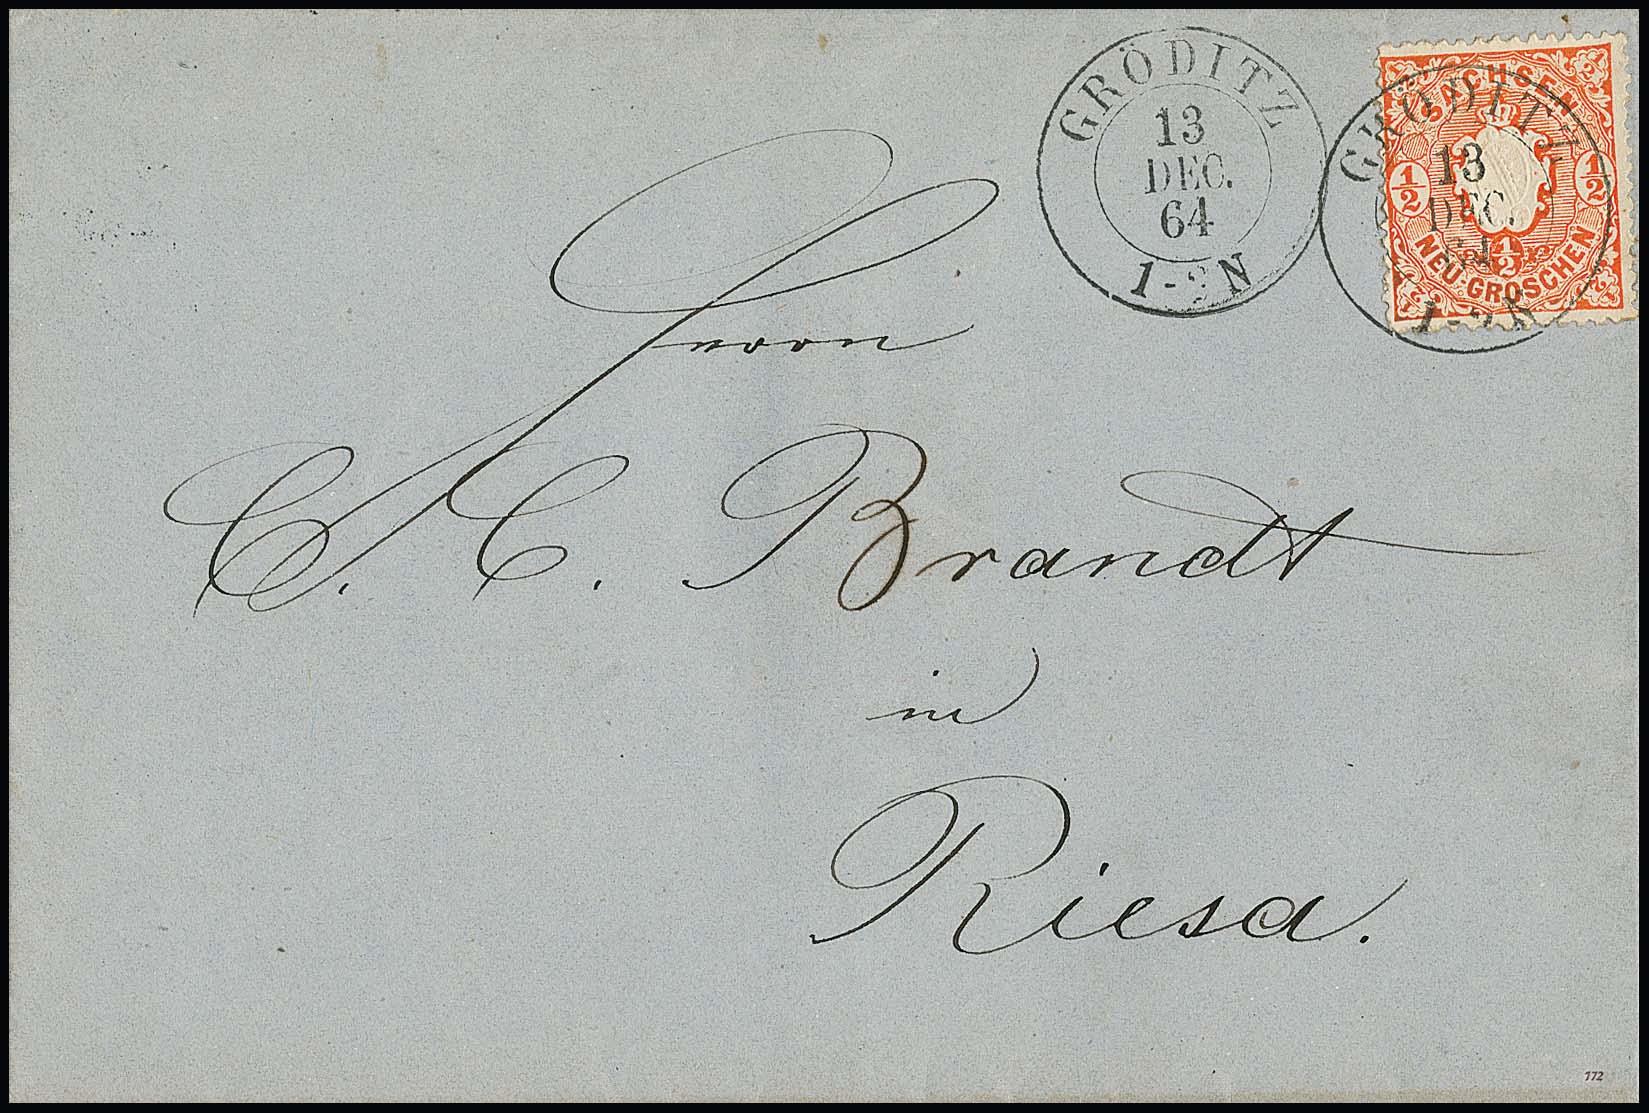 GRÖDITZ
13
DEC.
64
1-2 N
GRÖDITZ
13
DEC.
64
1-2 N
SACHSEN
1/2 1/2
1/2
NEU-GROSCHEN
Herrn
C. C. Brandt
in
Riesa.
772